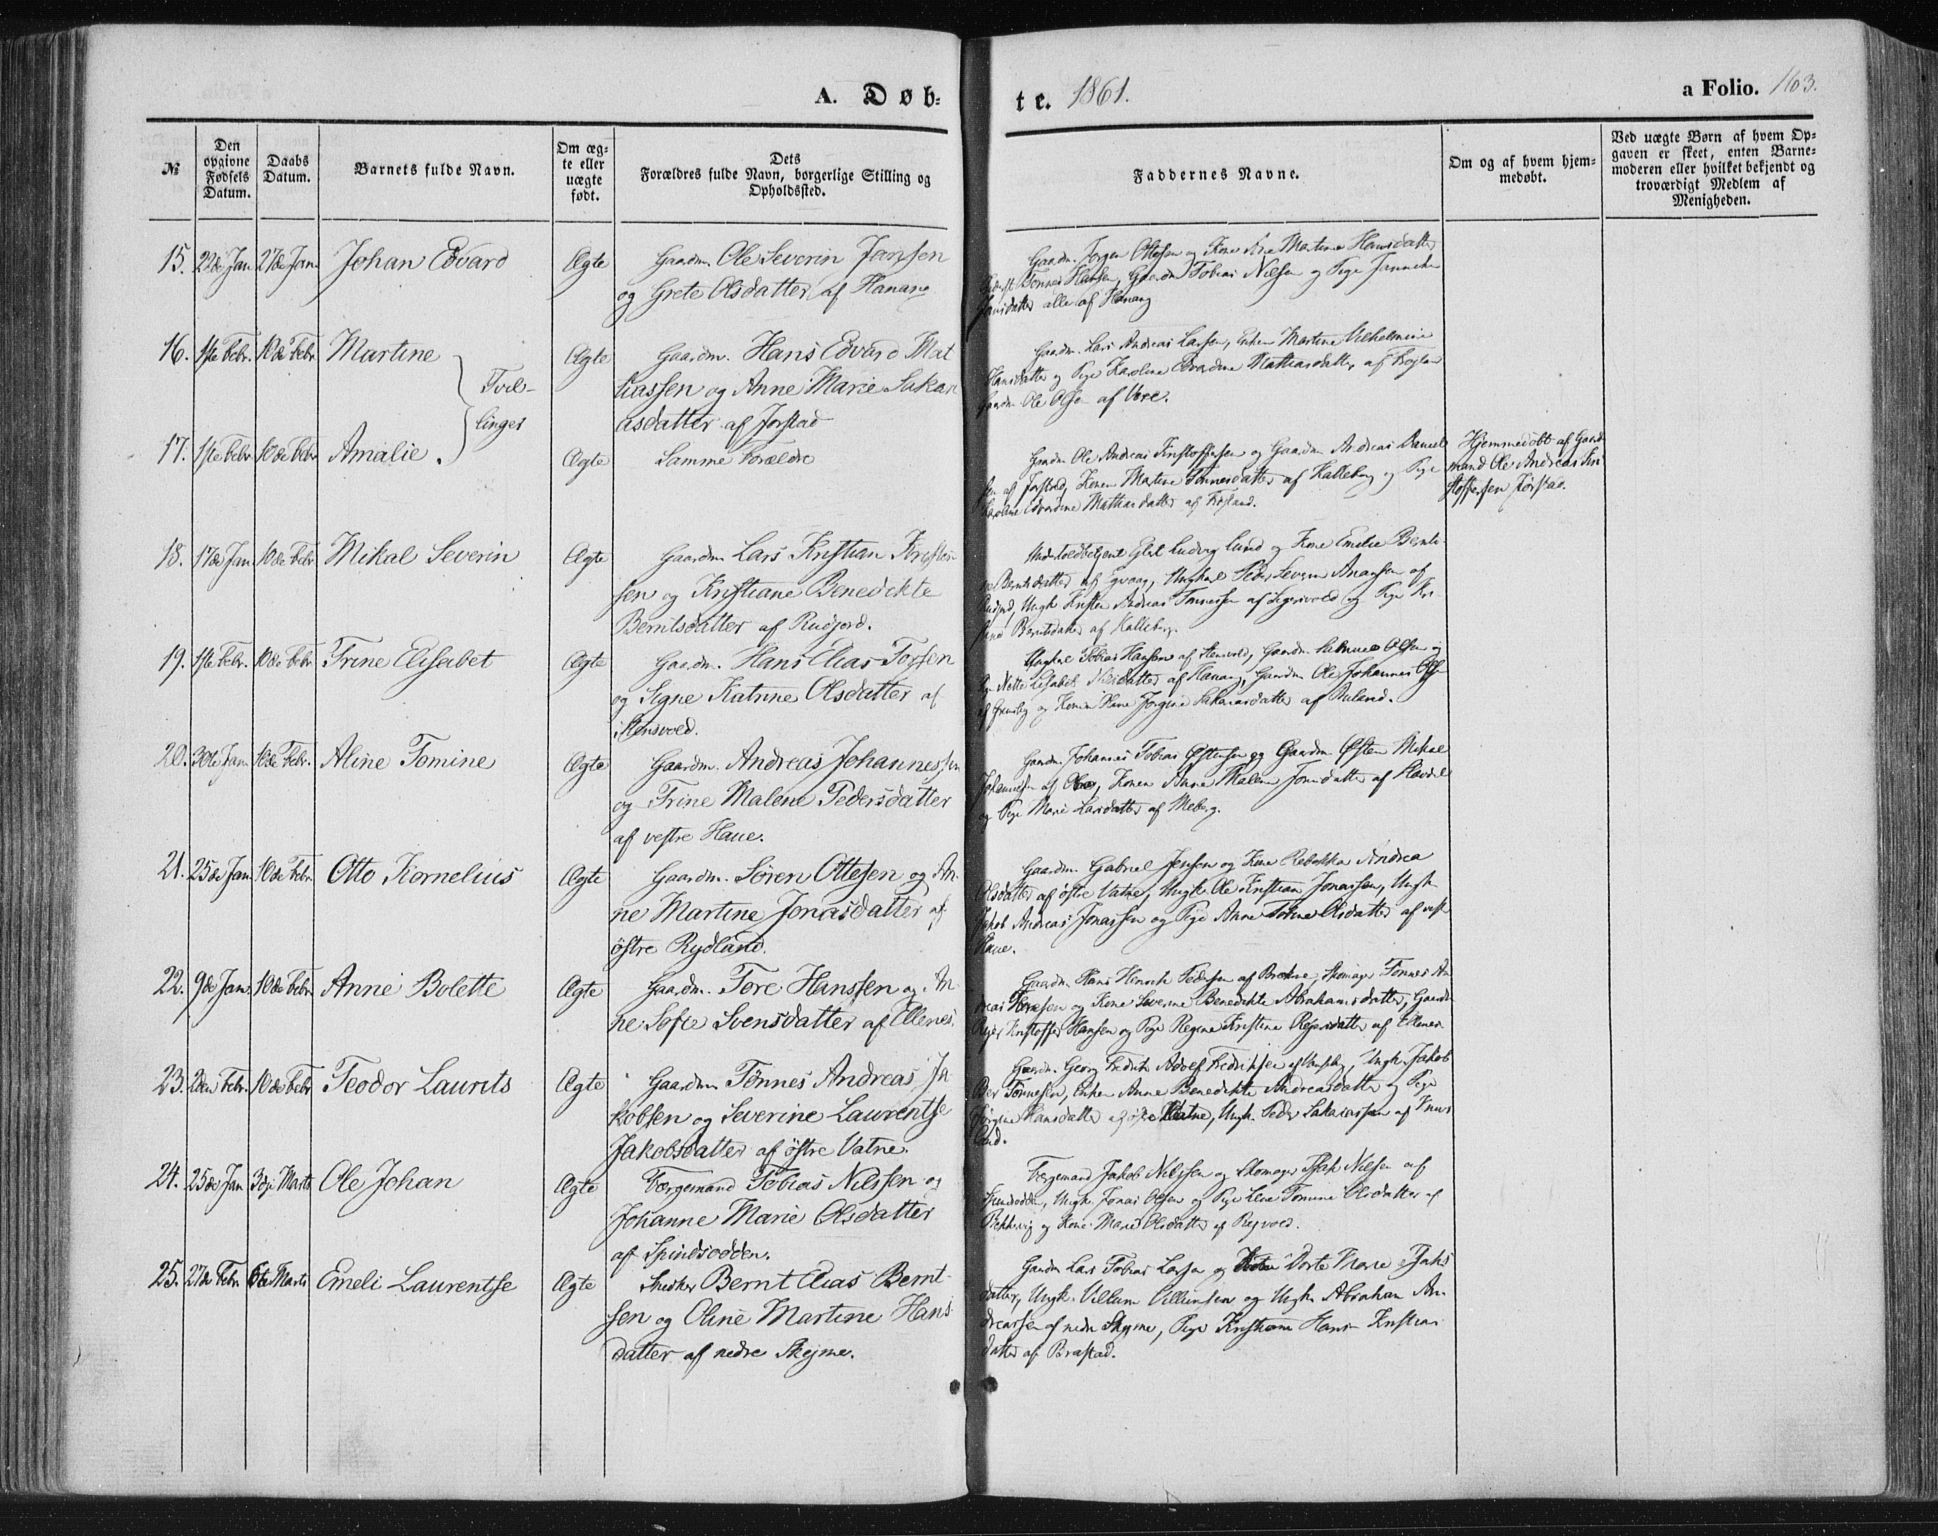 A. Døb-
te. 1861.
a Folio. 163.
№
Den opgivne Fødsels Datum.
Daabs Datum.
Barnets fulde Navn.
Om ægte eller uægte født.
Dets Forældres fulde Navn, borgerlige Stilling og Opholdssted.
Faddernes Navne.
Om og af hvem hjemmedøbt.
Ved uægte Børn af hvem Opgaven er skeet, enten Barnemoderen eller hvilket bekjendt og troværdigt Medlem af Menigheden.
15. 22de Jan 27de Jan Johan Edvard Ægte Gaardm. Ole Severin Janssen
og Grete Olsdatter af Hanang
Gaardm. Jørgen Ottesen og Kone Martine Hansdatter
Tønnes Hansen, Gaardm Tobias Nilsen og Pige Jannike
Hansdatter alle af Hanang
16. 1ste Febr. 10de Febr Martine Ægte Gaardm. Hans Edvard Mat
Tvil-
linger
hiassen og Anne Marie Sakari
asdatter af Jørstad
Gaardm. Lars Andreas Larsen, Enken Martine Vilhelmine
Hansdatter og Pige Karoline Edvardine Mathiasdatter af Frøjland
Gaardm Ole Olsen af Vore.
17. 1ste Febr 10de Febr Amalie. Ægte Samme Forældre
Gaardm Ole Andreas Kristoffersen og Gaardm Andreas Daniel
sen af Jørstad, Konen Martine Tønnesdatter af Kalleberg og Pige
Karoline Edvardine Mathiasdatter af Frøjland.
Hjemmedøbt af Gaard
mand Ole Andreas Kri
stoffersen Jørstad.
18. 17de Jan 10de Febr Mikal Severin Ægte Gaardm Lars Kristian Kristen
sen og Kristiane Benedikte
Berntsdatter af Rudjord.
Ludvig Lund og Kone Emilie Bernti
ne Berntsdatter af Egvaag, Ungkarl Peder Severin Anansen af
Rudjord, Ungk Kristen Andreas Tønnessen af Sigersvold og Pige Kri
stine Berntsdatter af Kalleberg.
19. 1ste Febr. 10de Febr Trine Elisabet Ægte Gaardm. Hans Elias Torsen
og Signe Katrine Olsdatter af
Stensvold.
Ungkarl Tobias Hansen af Stensvold, Gaardm Olsen og
Pige Nette Elisabet Nilsdatter af Hanang, Gaardm Ole Johannes Olsen
og Konen Jørgine Sakariasdatter af Buland.
20. 30te Jan 10de Febr. Aline Tomine Ægte Gaardm. Andreas Johannessen
og Trine Malene Pedersdatter
af vestre Haue.
Gaardm. Johannes Tobias Østensen og Gaardm Østen Mikal
Johannesen af Ore, Konen Anne Malene Jonsdatter af Slevdal
og Pige Marie Larsdatter af Meberg.
21. 25de Jan 10de Febr. Otto Kornelius Ægte Gaardm. Søren Ottesen og An
ne Martine Jonasdatter af
østre Rydland.
Gaardm. Gabriel Jensen og Kone Rebekka Andrea
Olsdatter af østre Vatne, Ungk Ole Kristian Jonassen, Ungk
Jakob Andreas Jonassen og Pige Anne Tomine Olsdatter af vest
Haue.
22. 9de Jan 10de Febr. Anne Bolette Ægte Gaardm. Tore Hanssen og An
ne Sofie Svensdatter af Ellenes.
Gaardm Hans Henrik Pedersen af Brekne, Skomager Tønnes An
dreas Toresen og Kone Severine Benedikte Abrahamsdatter, Gaardm
Rejer Kristoffer Hansen og Pige Regine Kristine Rejersdatter af Ellenes
23. 2den Febr. 10de Febr Teodor Laurits Ægte Gaardm Tønnes Andreas Ja
kobsen og Severine Laurentse
Jakobsdatter af østre Vatne.
Gaardm. Georg Fredrik Adolf Fredriksen af Vansby, Ungk. Jakob
Ber Tønnesen, Enken Anne Benedikte Andreasdatter og Pige
Jørgine Hansdatter af østre Vatne, Ungk Peder Sakariassen af Knus
land.
24. 25de Jan 3dje Marts Ole Johan Ægte Færgemand Tobias Nilssen og
Johanne Marie Olsdatter
af Spindsodden.
Færgemand Jakob Nilssen og Skomager Isak Nilsen af
Spindsodden, Ungk Jonas Olsen og Pige Lene Tomine Olsdatter af
Rekkevig og Kone Marie Olsdatter af Rejsvold.
25. 27de Febr 6te Marts Emeli Laurentse Ægte Snedker Bernt Elias Bernt
sen og Oline Martine Hans
datter af nedre Skejme.
Gaardm Lars Tobias Larsen og Kone Dorte Marie Isaks
datter, Ungk. Villum Villumsen og Ungk Abraham An
dreassen af nedre Skejme, Pige Kristiane Hansine Kristians
datter af Brastad.